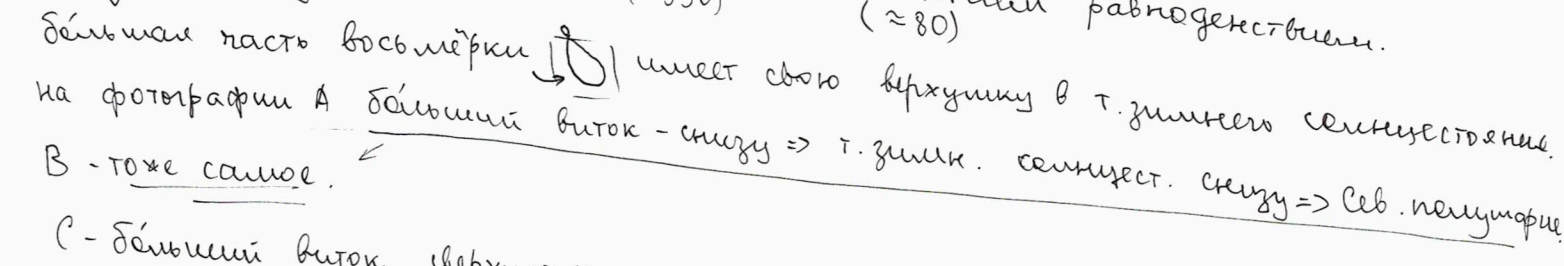 (≈80) равноденствием.
бо́льшая часть восьмёрки имеет свою верхушку в т. зимнего солнцестояния.
на фотографии А бо́льший виток - снизу => т. зимн. солнцест. снизу => Сев. полушарие.
В - тоже самое.
С - бо́льший виток